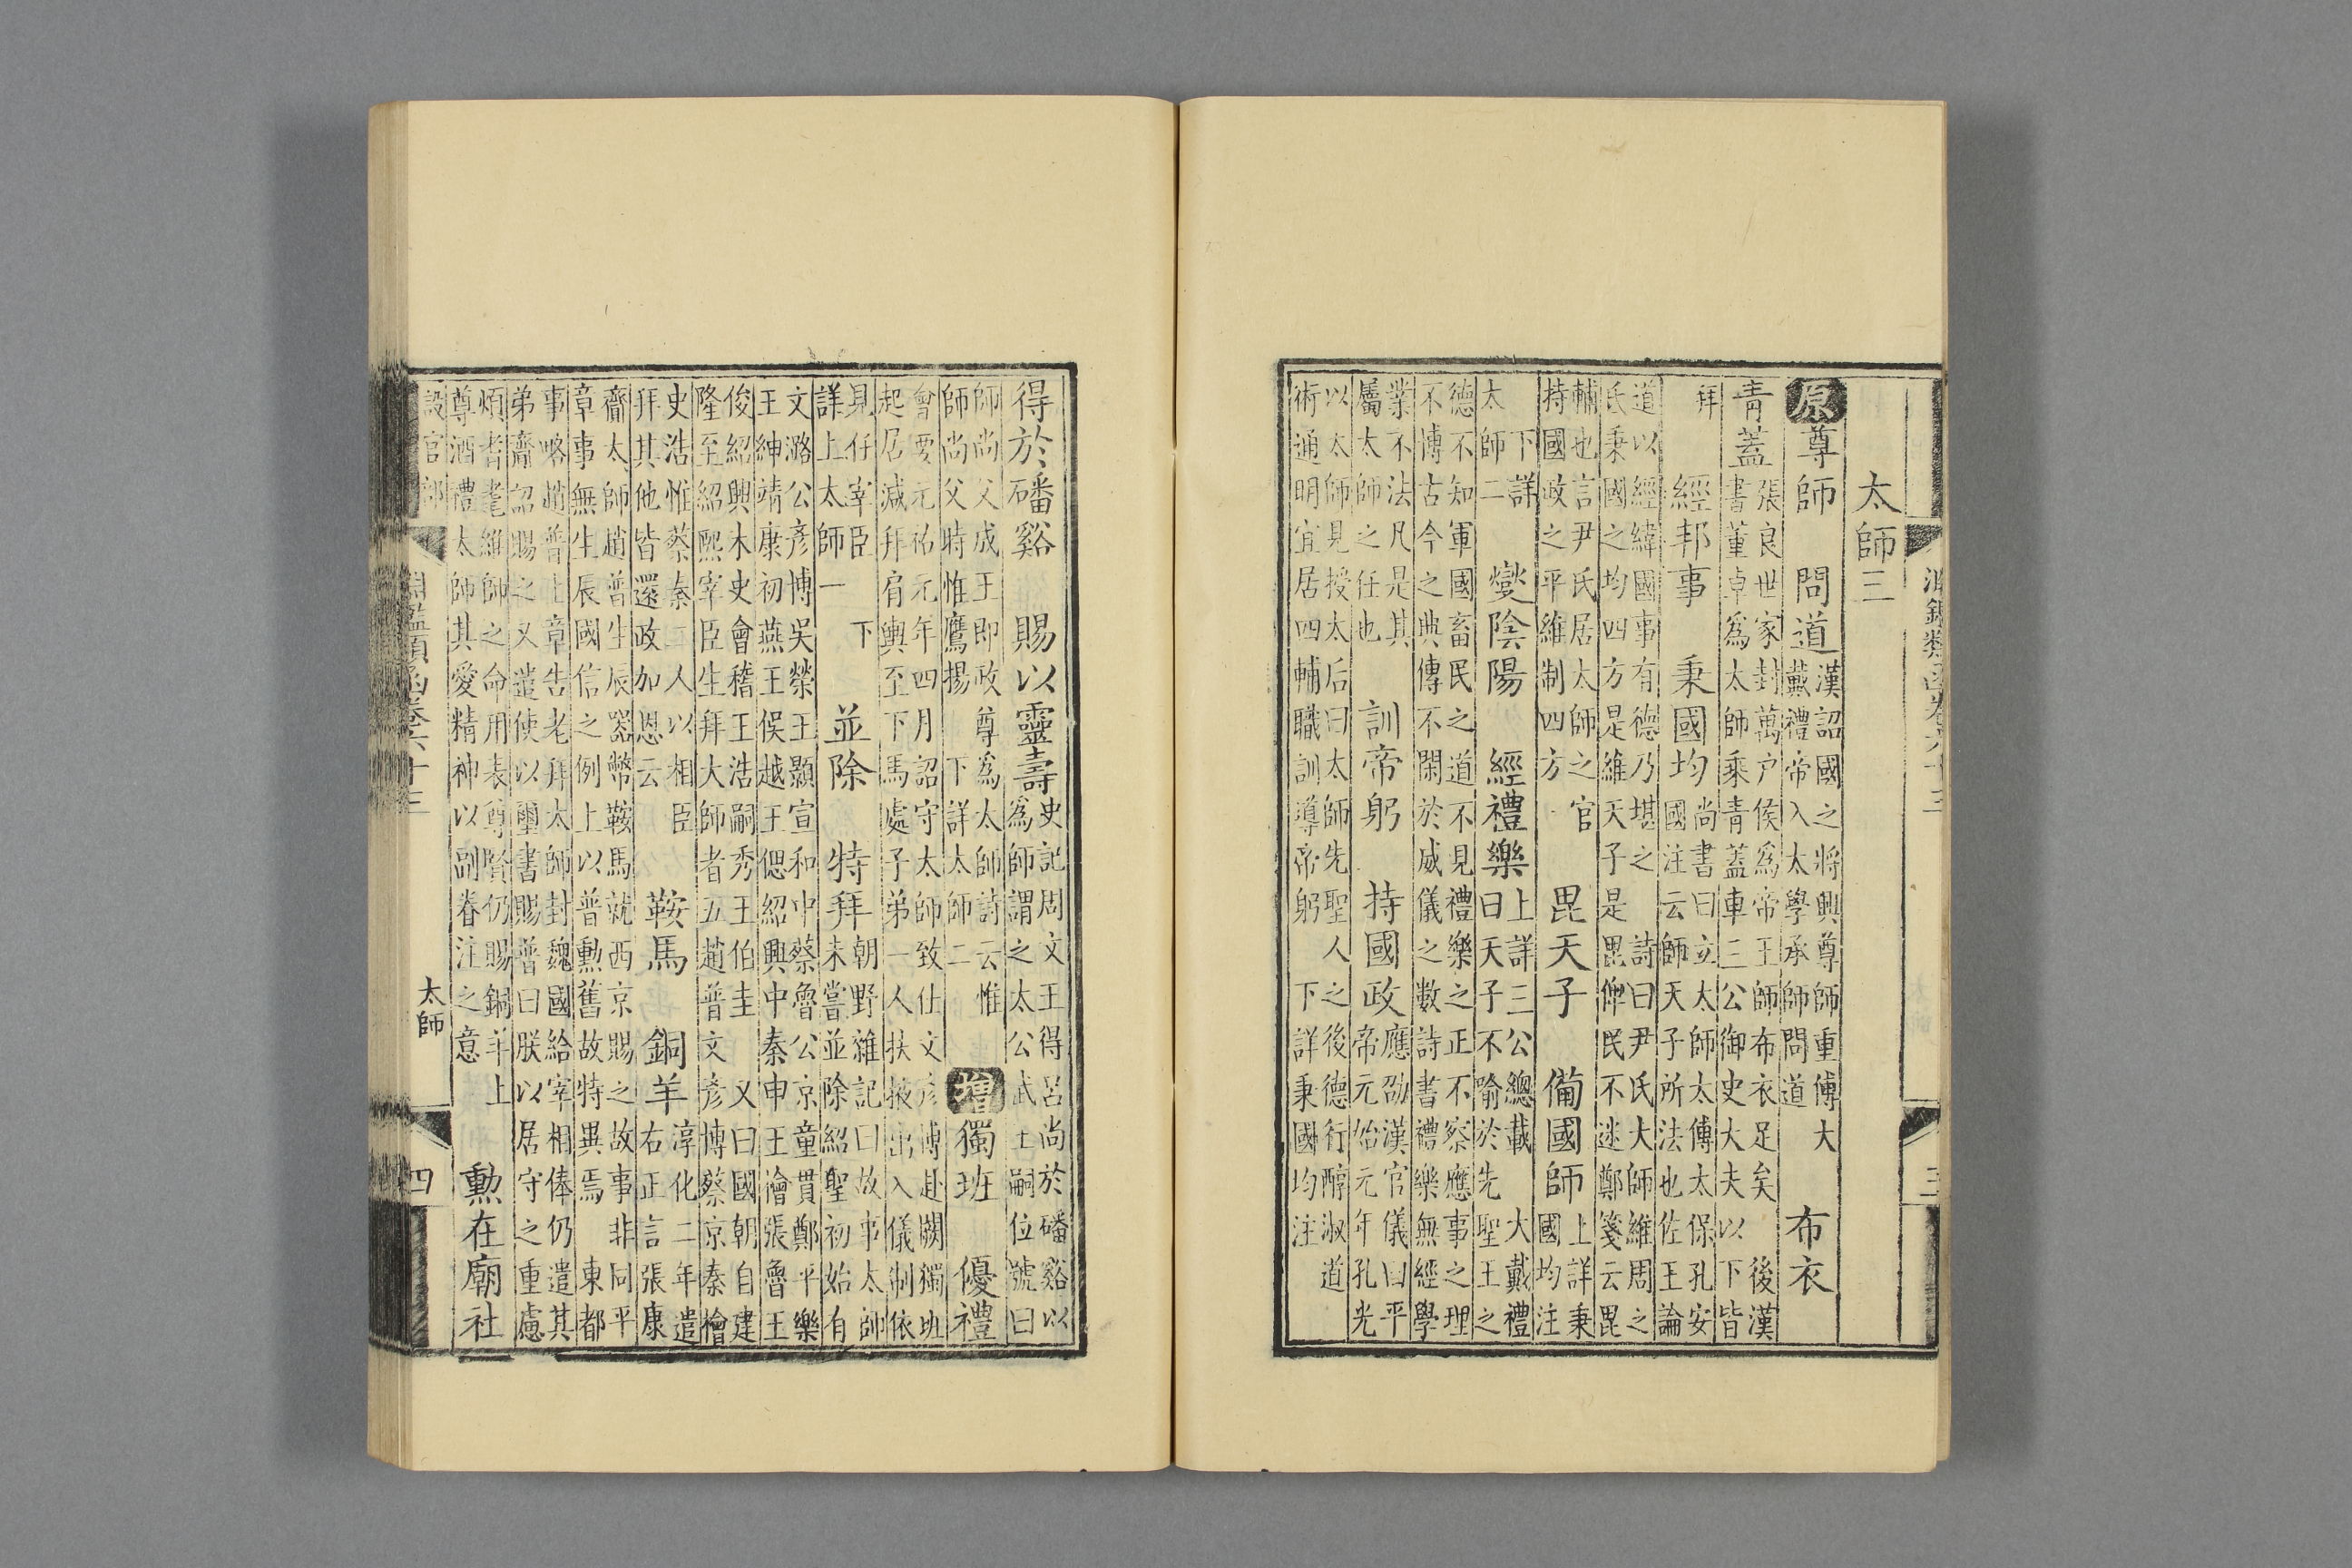 淵鑑類函卷六十三
三
太師三
原尊師 問道
漢詔國之將興尊師重傅大
戴禮帝入太學承師問道
布衣
青蓋
張良世家封萬户侯為帝王師布衣足矣 後漢
書董卓為太師乘青蓋車三公御史大夫以下皆
拜
經邦事 秉國均
尚書曰立太師太傅太保孔安
國注云師天子所法也佐王論
道以經緯國事有德乃堪之 詩曰尹氏大師維周之
氏秉國之均四方是維天子是毘俾民不迷鄭箋云毘
輔也言尹氏居太師之官
持國政之平維制四方
毘天子 備國師
上詳秉
國均注
下詳
太師二
燮陰陽 經禮樂
上詳三公總載 大戴禮
曰天子不喻於先聖王之
德不知軍國畜民之道不見禮樂之正不察應事之理
不博古今之典傳不閑於威儀之數詩書禮樂無經學
業不法凡是其
屬太師之任也
訓帝躬 持國政
應劭漢官儀曰平
帝元始元年孔光
以太師見授太后曰太師先聖人之後德行醇淑道
術通明宜居四輔職訓導帝躬 下詳秉國均注
得於磻谿 賜以靈壽
史記周文王得呂尚於磻谿以
為師謂之太公武王嗣位號曰
師尚父成王即政尊為太師詩云惟
師尚父時惟鷹揚 下詳太師二
增獨班 優禮
會要元祐元年四月詔守太師致仕文彥博赴闕獨班
起居減拜肩輿至下馬處子弟一人扶掖出入儀制依
見任宰臣 下
詳上太師一
並除 特拜
朝野雜記曰故事太師
未嘗並除紹聖初始有
文潞公彥博吳榮王顥宣和中蔡魯公京童貫鄭平樂
王紳靖康初燕王俁越王偲紹興中秦申王檜張魯王
俊紹興木史會稽王浩嗣秀王伯圭 又曰國朝自建
隆至紹熙宰臣生拜大師者五趙普文彥博蔡京秦檜
史浩惟蔡秦二人以相臣
拜其他皆還政加恩云
鞍馬 銅羊
淳化二年遣
右正言張康
齎太師趙普生辰器幣鞍馬就西京賜之故事非同平
章事無生辰國信之例上以普勳舊故特異焉 東都
事略趙普上章告老拜太師封魏國給宰相俸仍遣其
弟齎詔賜之又遣使以璽書賜普曰朕以居守之重慮
煩耆耄維師之命用表尊賢仍賜銅羊上
尊酒禮太師其愛精神以副眷注之意
勳在廟社
設官部
淵鑑類函卷六十三
太師
四